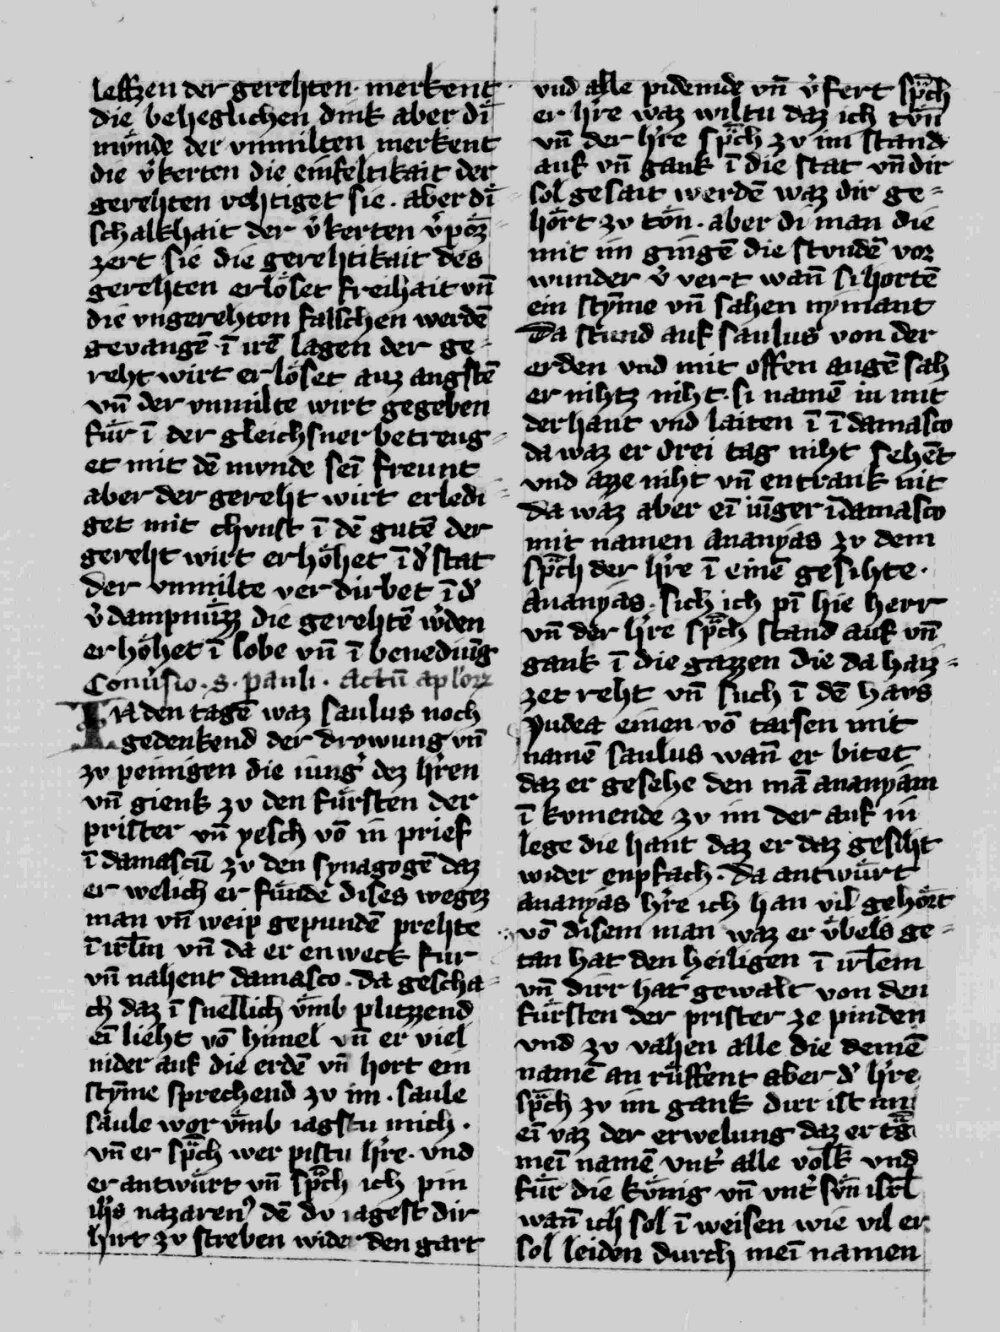 leffzen der gerehten · merkent
die beheglichen dink aber di
mu̍nde der vnmilten merkent
die v̓kerten die einfeltikait der
gerehten rehtiget sie · aber di
schalkhait der v̓kerten v̓poꝛ
zert sie die gerehtikait des
gerehten erlöset freihait vn̄
die vngerehten falschen werdē
gevangē · ī irē lagen der ge⸗
reht wirt erlöset auz angstē
vn̄ der vnmilte wirt gegeben
für ī der gleichsner betreug⸗
et mit dē mvnde sei̅ freunt
aber der gereht wirt erledi⸗
get mit chvnst ī dē gutē der
gereht wirt erhöhet ī d̓ stat
der vnmilte verdirbet ī d̓
v̓dampnüzz die gerehtē w̓den
erhöhet ī lobe vn̄ ī benediūg
Conu̓sio · s · pauli · actū aploꝝ
IN den tagē waz saulus noch
gedenkend der drowung vn̄
zv peinigen die iung̓ dez hr̓en
vn̄ gienk zv den fürsten der
prister vn̄ yesch vō in prief
ī damascū zv den synagogē daz
er welich er fünde dises wegez
man vn̄ weip gepundē prehte
ī irl̄m vn̄ da er enweck fur
vn̄ nahent damasco · da gescha⸗
ch daz ī snellich vmb plitzzend
ei̅ lieht vō himel vn̄ er viel
nider auf die erdē vn̄ hort ein
stȳme sprechend zv im · saule
saule wor vmb iagstu mich ·
vn̄ er spͣch wer pistu hr̓e · vnd
er antwürt vn̄ spͣch ich pin
ih̄s nazaren⁹ dē dv iagest dir
hirt zv streben wider den gart
vnd alle pidemde vn̄ v̓fert spͣch
er hr̓e waz wiltu daz ich tön
vn̄ der hr̓e spͣch zv im stand
auf vn̄ gank ī die stat vn̄ dir
sol gesait werdē waz dir ge⸗
hört zv tön · aber di man die
mit im gingē die stvndē vor
wunder v̓vert wan̄ si hortē
ein stȳme vn̄ sahen nymant
Da stund auf saulus von der
erden vnd mit offen augē sah
er nihtz niht · si namē in mit
der hant vnd laiten ī ī damasco
da waz er drei tag niht sehēt
vnd azze niht vn̄ entrank nit
Da waz aber ei̅ iūger ī damasco
mit namen ananyas zv dem
spͣch der hr̓e ī einē gesihte ·
Ananyas · sich ich pī hie herr
vn̄ der hr̓e spͣch stand auf vn̄
gank ī die gazzen die da haiz⸗
zet reht vn̄ such ī dē havs
Yudea einen vō tarsen mit
namē saulus wan̄ er bitet
daz er gesehe den mā ananyam
ī komende zv im der auf in
lege die hant daz er daz gesiht
wider enpfach · da antwürt
ananyas hr̓e ich han vil gehört
vō disem man waz er vbels ge⸗
tan hat den heiligen ī irl̄em
vn̄ dirr hat gewalt von den
fürsten der prister ze pinden
vnd zv vahen alle die deinē
namē an rüffent aber d̓ hr̓e
spͣch zv im gank dirr ist mir
ei̅ vaz der erwelung daz er tͣg
mei̅ namē vnt̓ alle volk vnd
für die künig vn̄ vnt̓ sün isrl̄
wan̄ ich sol ī weisen wie vil er
sol leiden durch mei̅ namen